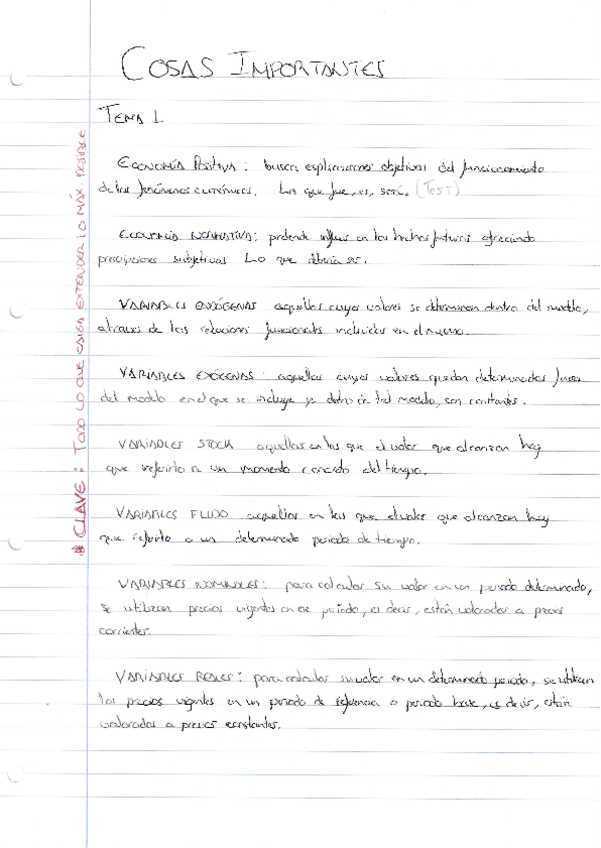 COSAS IMPORTANTES
TEMA 1.
ECONOMÍA POSITIVA: buscan explicaciones objetivas del funcionamiento
de los fenómenos económicos. Lo que fue, es, será. (TEST)
ECONOMÍA NORMATIVA: pretende influir en los hechos futuros ofreciendo
prescripciones subjetivas Lo que debería ser.
VARIABLES ENDÓGENAS aquellas cuyos valores se determinan dentro del modelo,
a través de las relaciones funcionales incluidas en el mismo.
VARIABLES EXÓGENAS: aquellas cuyos valores quedan determinados fuera
del modelo en el que se incluye y dentro de tal modelo, son constantes.
VARIABLES STOCK aquellas en las que el valor que alcanzan hay
que referirlo a un momento concreto del tiempo.
VARIABLES FLUJO aquellas en las que el valor que alcanzan hay
que referirlo a un determinado periodo de tiempo.
VARIABLES NOMINALES: para calcular su valor en un periodo determinado,
se utilizan precios vigentes en ese periodo, es decir, están valoradas a precios
corrientes.
VARIABLES REALES: para calcular su valor en un determinado periodo, se utilizan
los precios vigentes en un periodo de referencia o periodo base, es decir, están
valoradas a precios constantes.
* CLAVE: TODO LO QUE CAIGA EXTENDER LO MÁX. POSIBLE